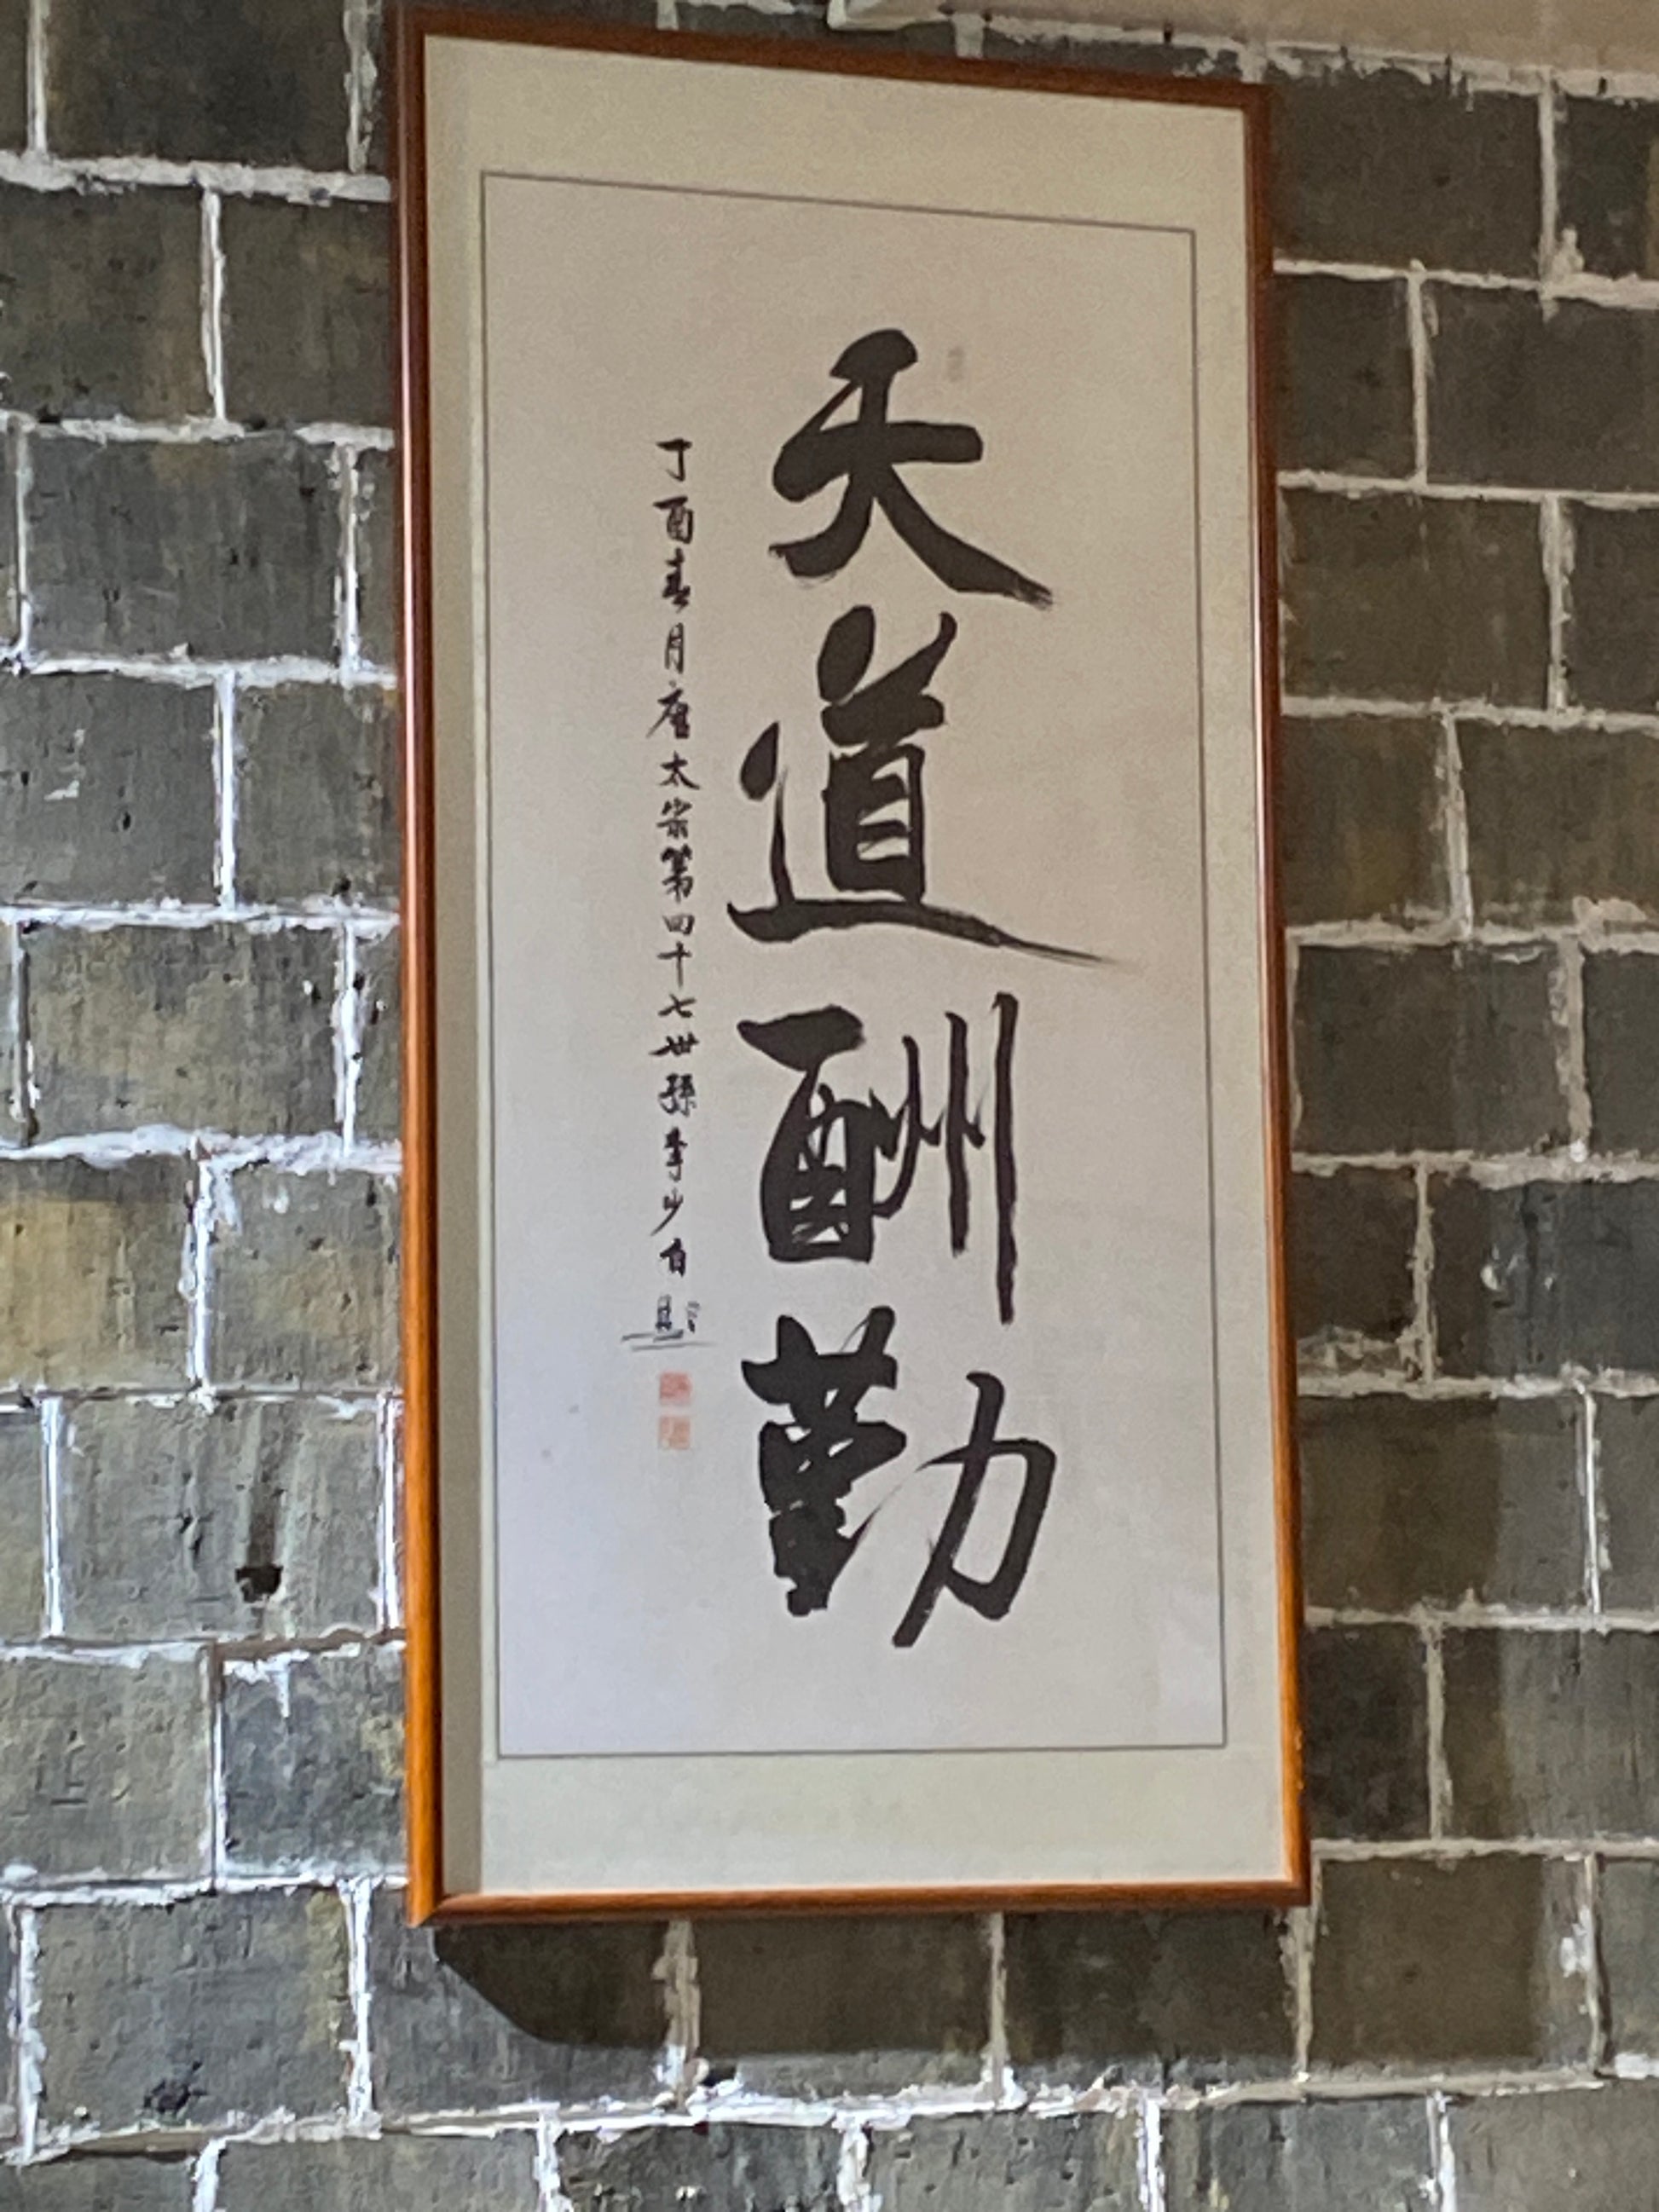 天道酬勤
丁酉春月唐太宗第四十七世孫李少白